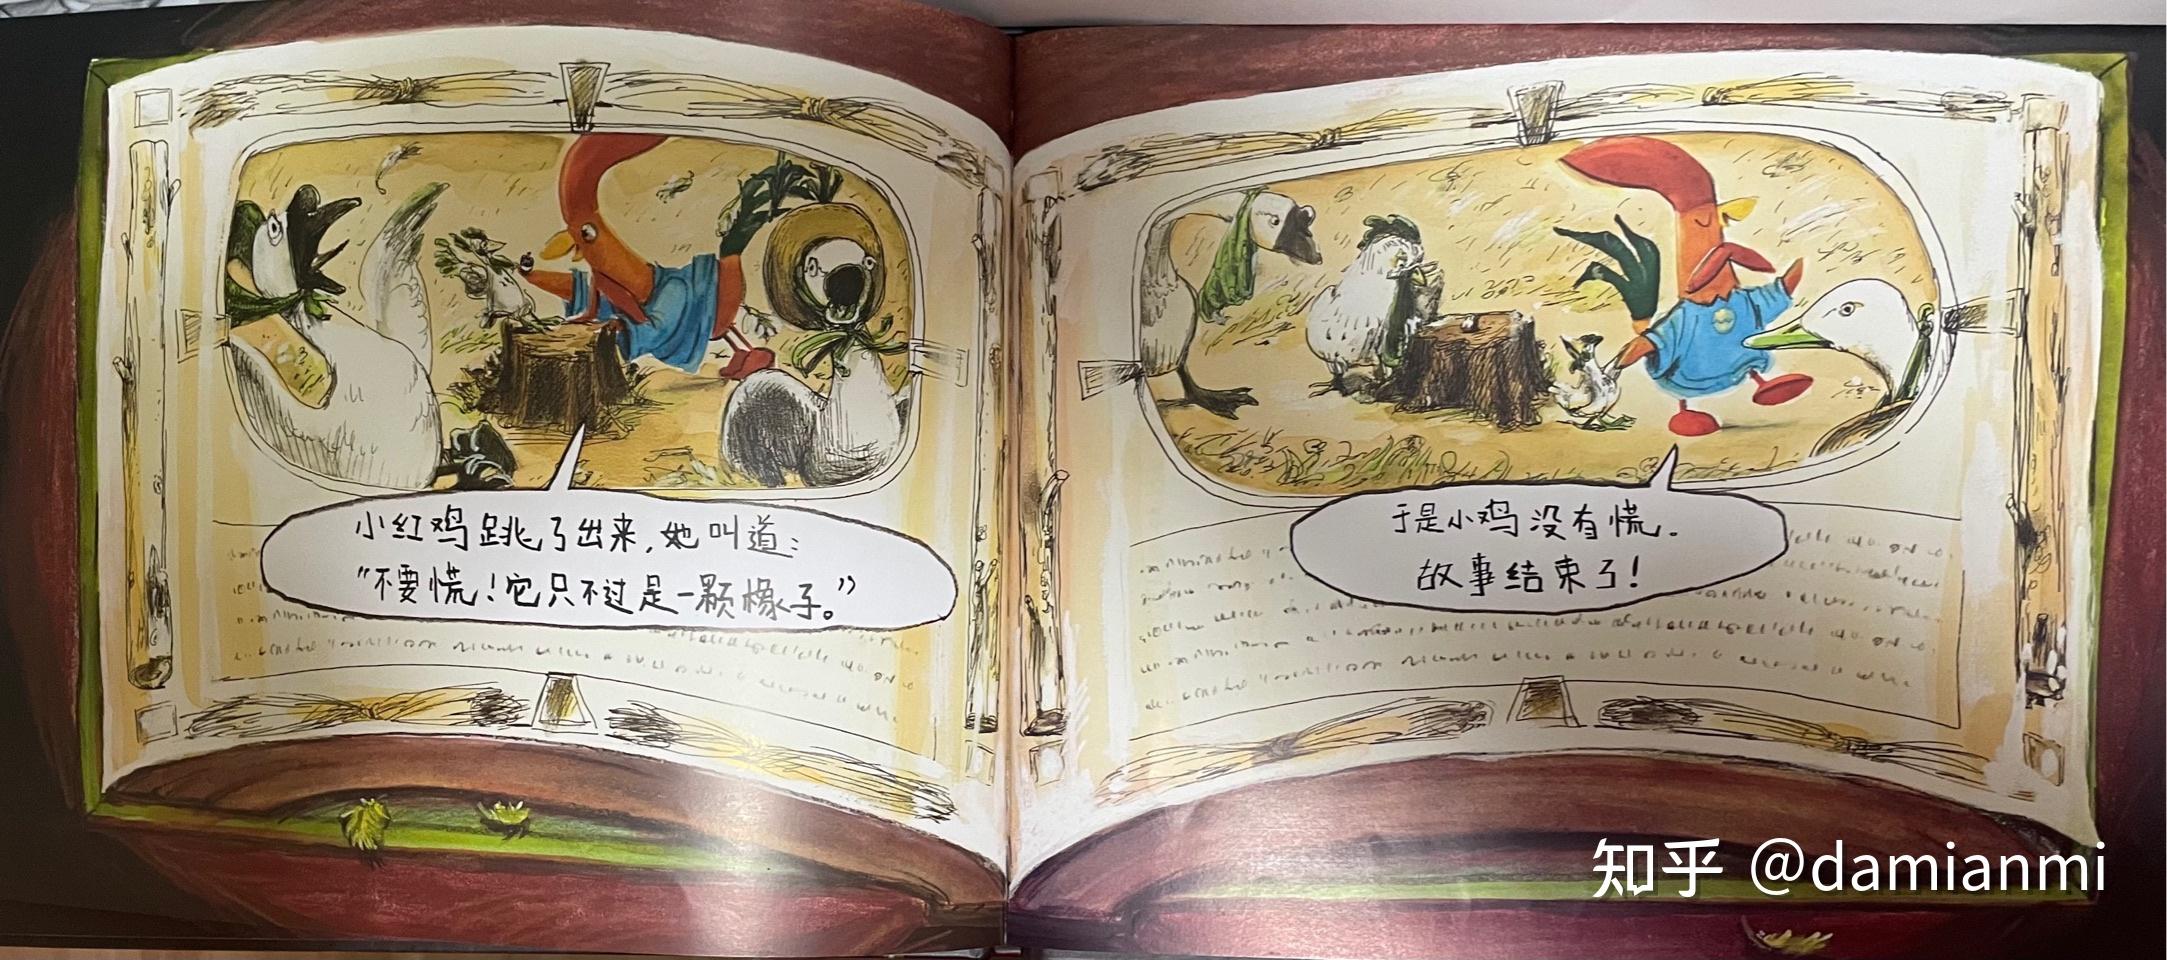 小红鸡跳了出来,她叫道:
“不要慌!它只不过是一颗橡子。”
于是小鸡没有慌.
故事结束了!
知乎 @damianmi